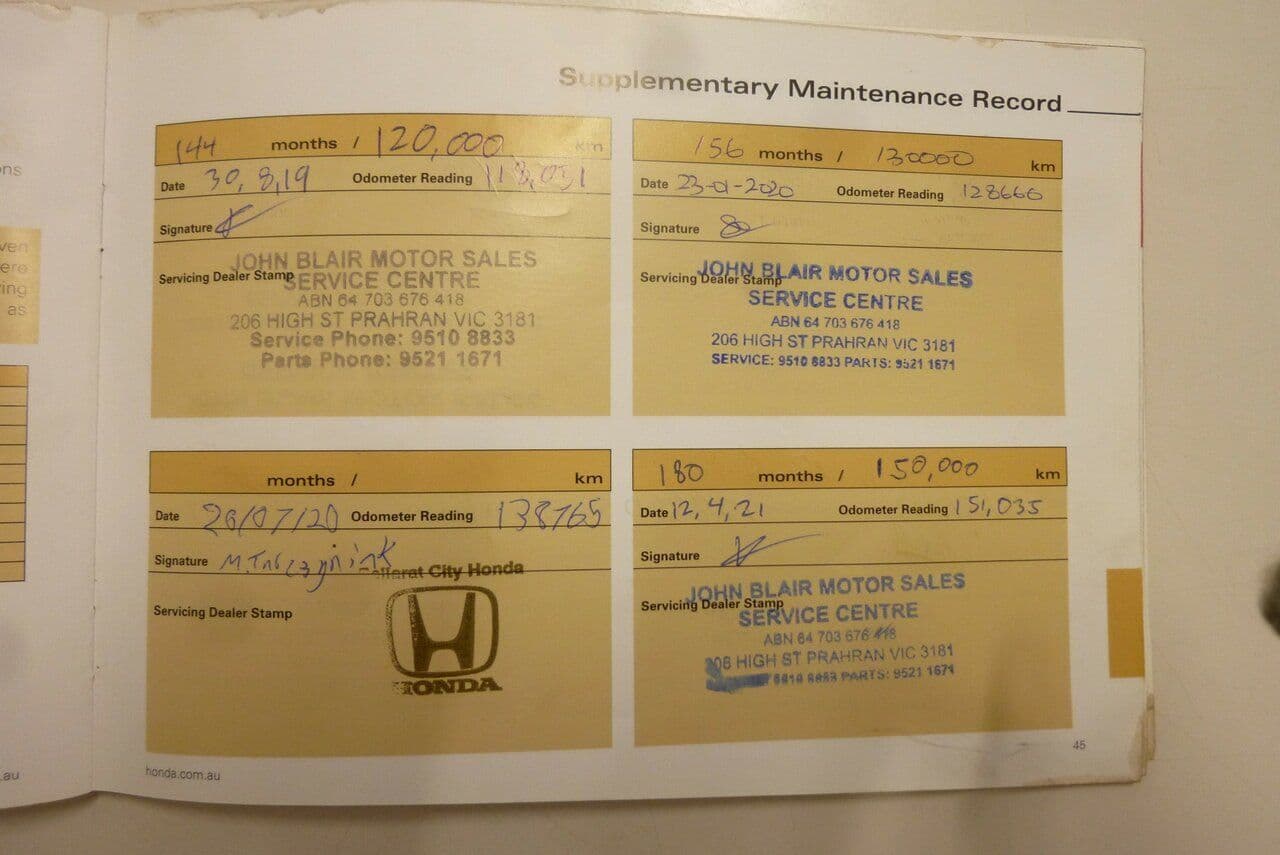 ons
ven
ere
ring
as
.au
Supplementary Maintenance Record
144 months / 120,000 km
Date 30,8,19 Odometer Reading 118,031
Signature
Servicing Dealer Stamp
JOHN BLAIR MOTOR SALES
SERVICE CENTRE
ABN 64 703 676 418
206 HIGH ST PRAHRAN VIC 3181
Service Phone: 9510 8833
Parts Phone: 9521 1671
156 months / 130000 km
Date 23-01-2020 Odometer Reading 128660
Signature
Servicing Dealer Stamp
JOHN BLAIR MOTOR SALES
SERVICE CENTRE
ABN 64 703 676 418
206 HIGH ST PRAHRAN VIC 3181
SERVICE: 9510 8833 PARTS: 9521 1671
months / km
Date 20/07/20 Odometer Reading 138765
Signature
Ballarat City Honda
Servicing Dealer Stamp
HONDA
180 months / 150,000 km
Date 12,4,21 Odometer Reading 151,035
Signature
Servicing Dealer Stamp
JOHN BLAIR MOTOR SALES
SERVICE CENTRE
ABN 64 703 676 418
206 HIGH ST PRAHRAN VIC 3181
9510 8833 PARTS: 9521 1671
honda.com.au
45